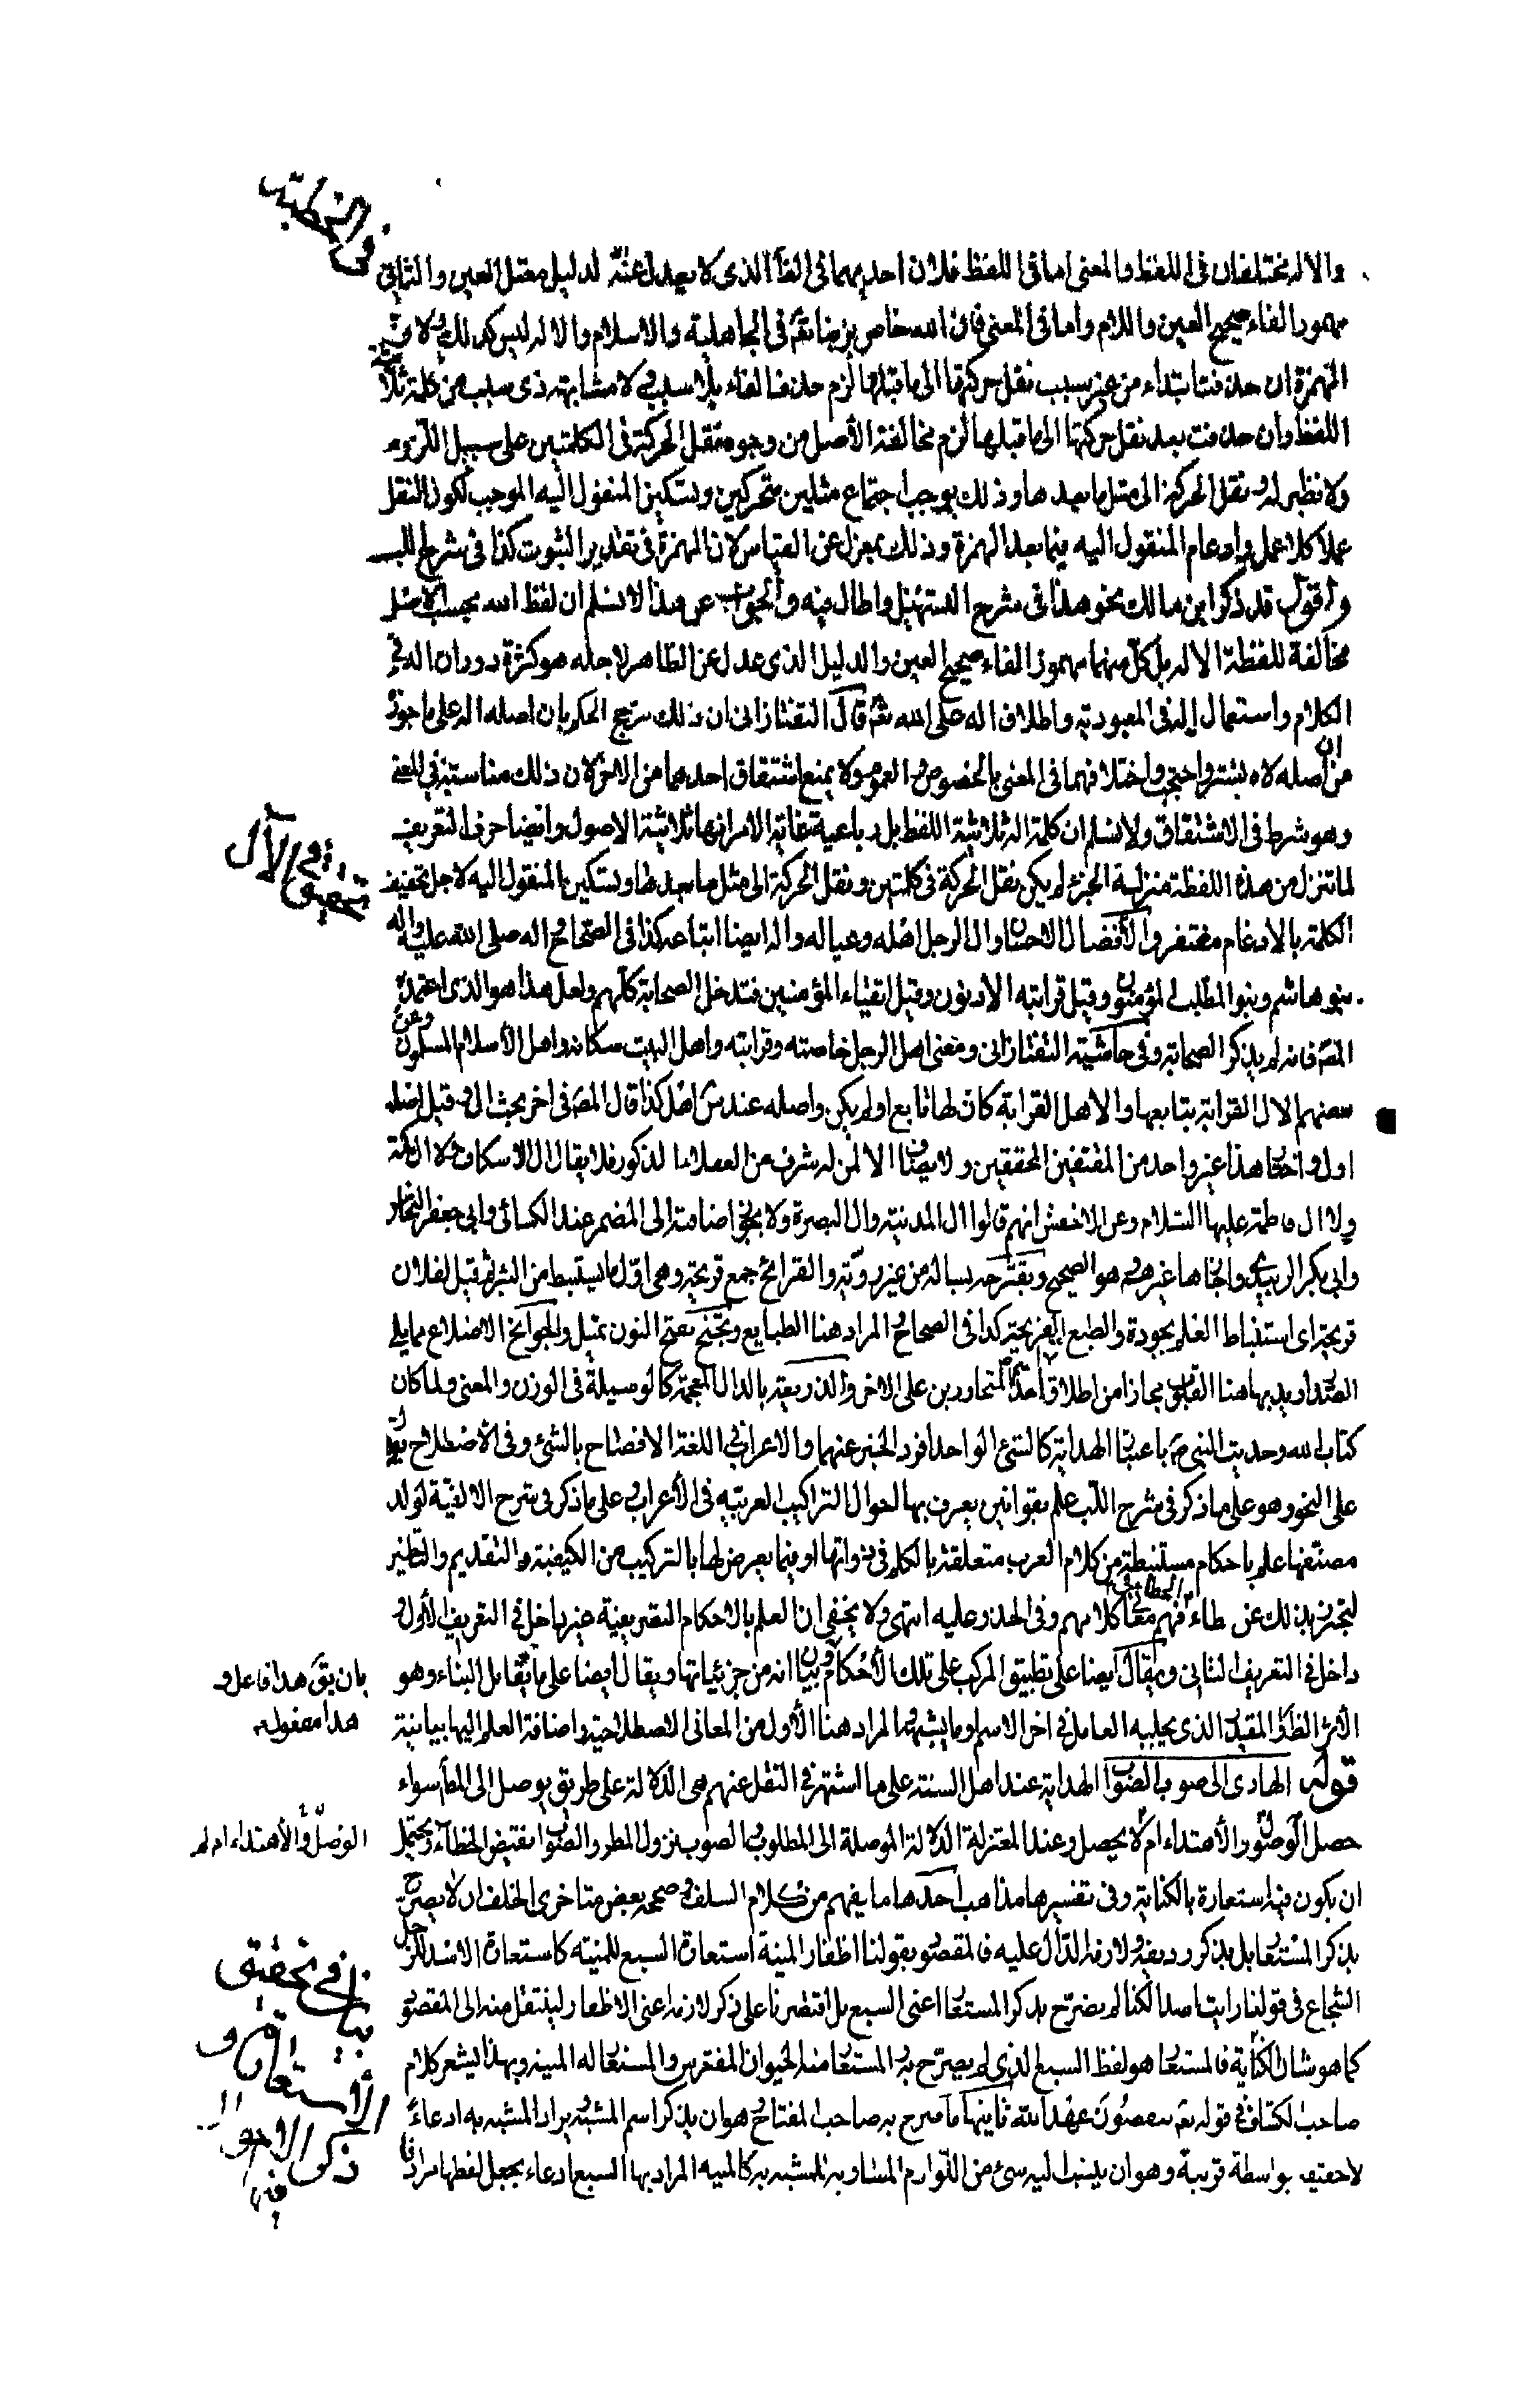 في الخطبة
والاله مختلفان في اللفظ والمعنى اما في اللفظ فلان احديهما في الظاهر الذي لا يعدل عنه الا لدليل معتل العين والثاني
مهموز الفاء صحيح العين واللام واما في المعنى فان الله خاص بربنا تعالى في الجاهلية والاسلام والاله ليس كذلك ولان
الهمزة ان حذفت ابتداء من غير سبب نقل حركتها الى ما قبلها لزم حذف الفاء بلا سبب ولا مشابهة ذي سبب من كلمة ثلاثية
اللفظ وان حذفت بعد نقل حركتها الى ما قبلها لزم مخالفة الأصل من وجوه نقل الحركة في الكلمتين على سبيل اللزوم
ولا نظير له ونقل الحركة الى مثل ما بعدها وذلك يوجب اجتماع مثلين متحركين وتسكين المنقول اليه الموجب لكون النقل
عملا كلا عمل وادغام المنقول اليه فيما بعد الهمزة وذلك بمعزل عن القياس لان الهمزة في تقدير الثبوت كذا في شرح اللب
وأقول قد ذكر ابن مالك نحو هذا في شرح التسهيل واطال فيه والجواب عن هذا لا نسلم ان لفظ الله بحسب الاصل
مخالفة للفظة الاله بل كل منهما مهموز الفاء صحيح العين والدليل الذي عدل عن الظاهر لاجله هو كثرة دوران اله في
الكلام واستعمال اله في المعبودية واطلاق اله على الله تعالى قال التفتازاني ان ذلك يرجح الحكم بان اصله اله على ما جوز
من ان اصله لاه يستر واحتجب واختلافهما في المعنى بالخصوص والعموم لا يمنع اشتقاق احدهما من الاخر لان ذلك مناسبة في المعنى
وهو شرط في الاشتقاق ولا نسلم ان كلمة اله ثلاثية اللفظ بل رباعية غاية الامر انها ثلاثية الاصول وايضا حرف التعريف
لما تنزل من هذه اللفظة منزلة الجزء لم يكن نقل الحركة في كلمتين ونقل الحركة الى مثل ما بعدها وتسكين المنقول اليه لاجل تخفيف
تحقيق في الآل
الكلمة بالادغام مغتفر والأفضال الاحسان وال الرجل اهله وعياله واله ايضا اتباعه كذا في الصحاح واله صلى الله عليه واله
بنو هاشم وبنو المطلب المؤمنون وقيل قرابته الأدنون وقيل اتقياء المؤمنين فتدخل الصحابة كلهم ولعل هذا هو الذي اعتمده
المص فانه لم يذكر الصحابة وفي حاشية التفتازاني ومعنى اهل الرجل خاصته وقرابته واهل البيت سكانه واهل الأسلام المسلمون وعن
بعضهم الال القرابة بتابعها والاهل القرابة كان لها تابع او لم يكن واصله عند س اهل كذا قال المص في اخر بحث ال وقيل اصله
اول واختار هذا غير واحد من المحققين ولا يضاف الا لمن له شرف من العقلاء الذكور فلا يقال ال الاسكاف ولا ال مكة
ولا ال فاطمة عليها السلام وعن الاخفش انهم قالوا ال المدينة وال البصرة ولا يجوز اضافته الى المضمر عند الكسائي وابي جعفر النحاس
وابي بكر الزبيدي واجازها غيرهم وهو الصحيح ويقترحه يساله من غير روية والقرائح جمع قريحة وهي اول ما يستنبط من البئر قيل لفلان
قريحة اي استنباط العلم بجودة والطبع الغريزة كذا في الصحاح والمراد هنا الطبايع وتجنح بفتح النون تميل والجوانح الاضلاع مما يلي
الصدر اريد بها هنا القلوب مجازا من اطلاق احد المتجاورين على الاخر والذريعة بالذال المعجمة كالوسيلة في الوزن والمعنى ولما كان
كتاب الله وحديث النبي ص باعتبار الهداية كالشئ الواحد افرد الخبر عنهما والاعراب في اللغة الافصاح بالشئ وفي الأصطلاح يقال
على النحو وهو على ما ذكر في شرح اللب علم بقوانين يعرف بها احوال التراكيب العربية في الأعراب وعلى ما ذكر في شرح الالفية لولد
مصنفها علم باحكام مستنبطة من كلام العرب متعلقة بالكلم في ذواتها او فيما يعرض لها بالتركيب من الكيفية والتقديم والتاخير
ليحترز بذلك عن الخطاء في فهم معاني كلامهم وفي الحذو عليه انتهى ولا يخفى ان العلم بالاحكام التصريفية غير داخل في التعريف الأول
داخل في التعريف الثاني ويقال ايضا على تطبيق المركب على تلك الأحكام وبيان انه من جزئياتها ويقال ايضا على ما يقابل البناء وهو
بان يق هذا فاعل و
هذا مفعول
الأثر الظاهر او المقدر الذي يجلبه العامل في اخر الاسم وما يشبهه والمراد هنا الأول من المعاني الاصطلاحية واضافة العلم اليها بيانية
قوله الهادي الى صوب الصواب الهداية عند اهل السنة على ما اشتهر في النقل عنهم هي الدلالة على طريق يوصل الى المط سواء
حصل الوصول والأهتداء ام لا يحصل وعند المعتزلة الدلالة الموصلة الى المطلوب والصوب نزول المطر والصواب نقيض الخطاء ويحتمل
الوصل والأهتداء ام لم
ان يكون فيه استعارة بالكناية وفي تفسيرها مذاهب احدها ما يفهم من كلام السلف وصححه بعض متاخري الخلف ان لا يصرح
بذكر المستعار بل بذكر رديفه ولازمه الدال عليه فالمقصود بقولنا اظفار المنية استعارة السبع للمنية كاستعارة الاسد للرجل
بيان في تحقيق
الأستعارة و
ذكر الاقوال
فيها
الشجاع في قولنا رايت اسدا لكنا لم نصرح بذكر المستعار اعني السبع بل اقتصرنا على ذكر لازمه اعني الاظفار لينتقل منه الى المقصود
كما هو شان الكناية فالمستعار هو لفظ السبع الذي لم يصرح به والمستعار منه الحيوان المفترس والمستعار له المنية وبهذا يشعر كلام
صاحب الكشاف في قوله تعالى ينقضون عهد الله ثانيها ما صرح به صاحب المفتاح وهو ان يذكر اسم المشبه ويراد المشبه به ادعاء
لا حقيقة بواسطة قرينة وهو ان ينسب اليه شئ من اللوازم المساوية للمشبه به كالمنية المراد بها السبع ادعاء بجعل لفظها مرادفا